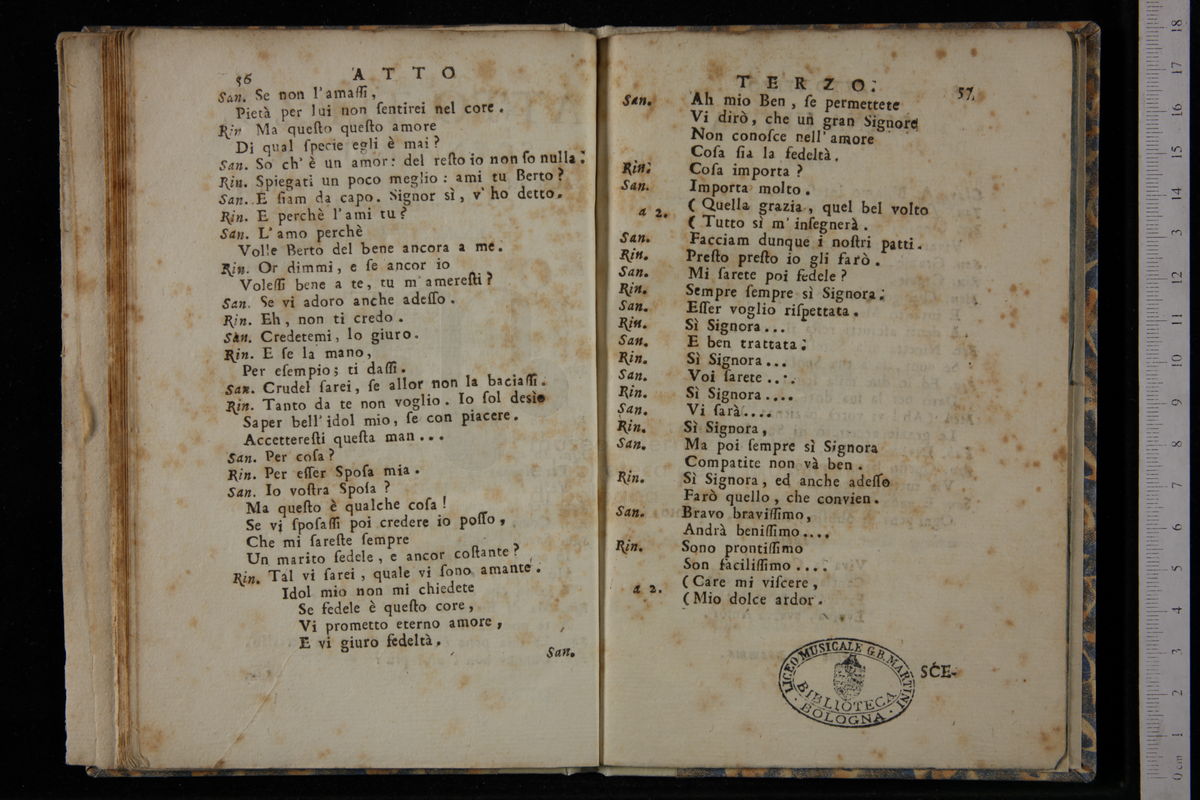 56 ATTO
San. Se non l'amaſſi,
Pietà per lui non ſentirei nel core.
Rin Ma queſto queſto amore
Di qual ſpecie egli è mai?
San. So ch'è un amor: del reſto io non ſo nulla:
Rin. Spiegati un poco meglio: ami tu Berto?
San. E ſiam da capo. Signor sì, v'ho detto.
Rin. E perchè l'ami tu?
San. L'amo perchè
Volle Berto del bene ancora a me.
Rin. Or dimmi, e ſe ancor io
Voleſſi bene a te, tu m'amereſti?
San. Se vi adoro anche adeſſo.
Rin. Eh, non ti credo.
San. Credetemi, lo giuro.
Rin. E ſe la mano,
Per eſempio; ti daſſi.
San. Crudel ſarei, ſe allor non la baciaſſi.
Rin. Tanto da te non voglio. Io ſol desìo
Saper bell'idol mio, ſe con piacere.
Accettereſti queſta man...
San. Per coſa?
Rin. Per eſſer Spoſa mia.
San. Io voſtra Spoſa?
Ma queſto è qualche coſa!
Se vi ſpoſaſſi poi credere io poſſo,
Che mi ſareſte ſempre
Un marito fedele, e ancor coſtante?
Rin. Tal vi ſarei, quale vi ſono amante.
Idol mio non mi chiedete
Se fedele è queſto core,
Vi prometto eterno amore,
E vi giuro fedeltà.
San.
TERZO. 57
San. Ah mio Ben, ſe permettete
Vi dirò, che un gran Signore
Non conoſce nell'amore
Coſa ſia la fedeltà.
Rin. Coſa importa?
San. Importa molto.
a 2. (Quella grazia, quel bel volto
(Tutto sì m'inſegnerà.
San. Facciam dunque i noſtri patti.
Rin. Preſto preſto io gli farò.
San. Mi ſarete poi fedele?
Rin. Sempre ſempre sì Signora.
San. Eſſer voglio riſpettata.
Rin. Sì Signora...
San. E ben trattata:
Rin. Sì Signora...
San. Voi ſarete...
Rin. Sì Signora....
San. Vi ſarà....
Rin. Sì Signora,
San. Ma poi ſempre sì Signora
Compatite non và ben.
Rin. Sì Signora, ed anche adeſſo
Farò quello, che convien.
San. Bravo braviſſimo,
Andrà beniſſimo....
Rin. Sono prontiſſimo
Son faciliſſimo....
a 2. (Care mi viſcere,
(Mio dolce ardor.
SCE-
LICEO MUSICALE G.B. MARTINI
BIBLIOTECA
BOLOGNA
0 cm 1 2 3 4 5 6 7 8 9 10 11 12 13 14 15 16 17 18